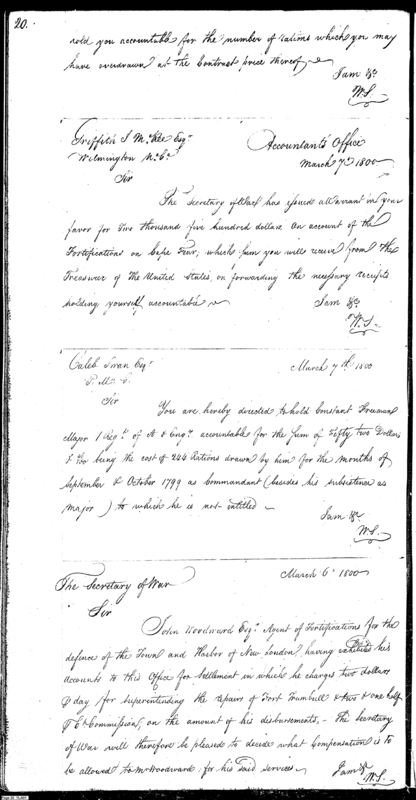 20.
hold you accountable for the number of rations which you may
have overdrawn at the Contract price thereof
I am &c
W.S.
Griffith J McRee Esqr
Wilmington N. Ca
Accountants Office
March 7th 1800
Sir
The Secretary of War has issued a Warrant in your
favor for Two thousand five hundred dollars on account of the
Fortifications on Cape Fear, which sum you will receive from the
Treasurer of the United States, on forwarding the necessary receipts
holding yourself accountable
I am &c
W.S.
Caleb Swan Esqr
P. M. G.
March 7th 1800
Sir
You are hereby directed to hold Constant Freeman
Major 1 Regt of A & Engrs accountable for the sum of Fifty two Dollars
being the cost of 244 Rations drawn by him for the months of
September & October 1799 as Commandant (besides his subsistence as
Major) to which he is not entitled
I am &c
W.S.
March 6 1800
The Secretary of War
Sir
John Woodward Esqr Agent of Fortifications for the
defence of the Town and Harbor of New London, having his
accounts to this Office for settlement in which he charges two dollars
day for superintending the repairs of Fort Trumbull & two & one half
Ct Commission, on the amount of his disbursements, - the Secretary
of War will therefore be pleased to decide what compensation is to
be allowed to Mr Woodward for his said services
I am &c
W.S.